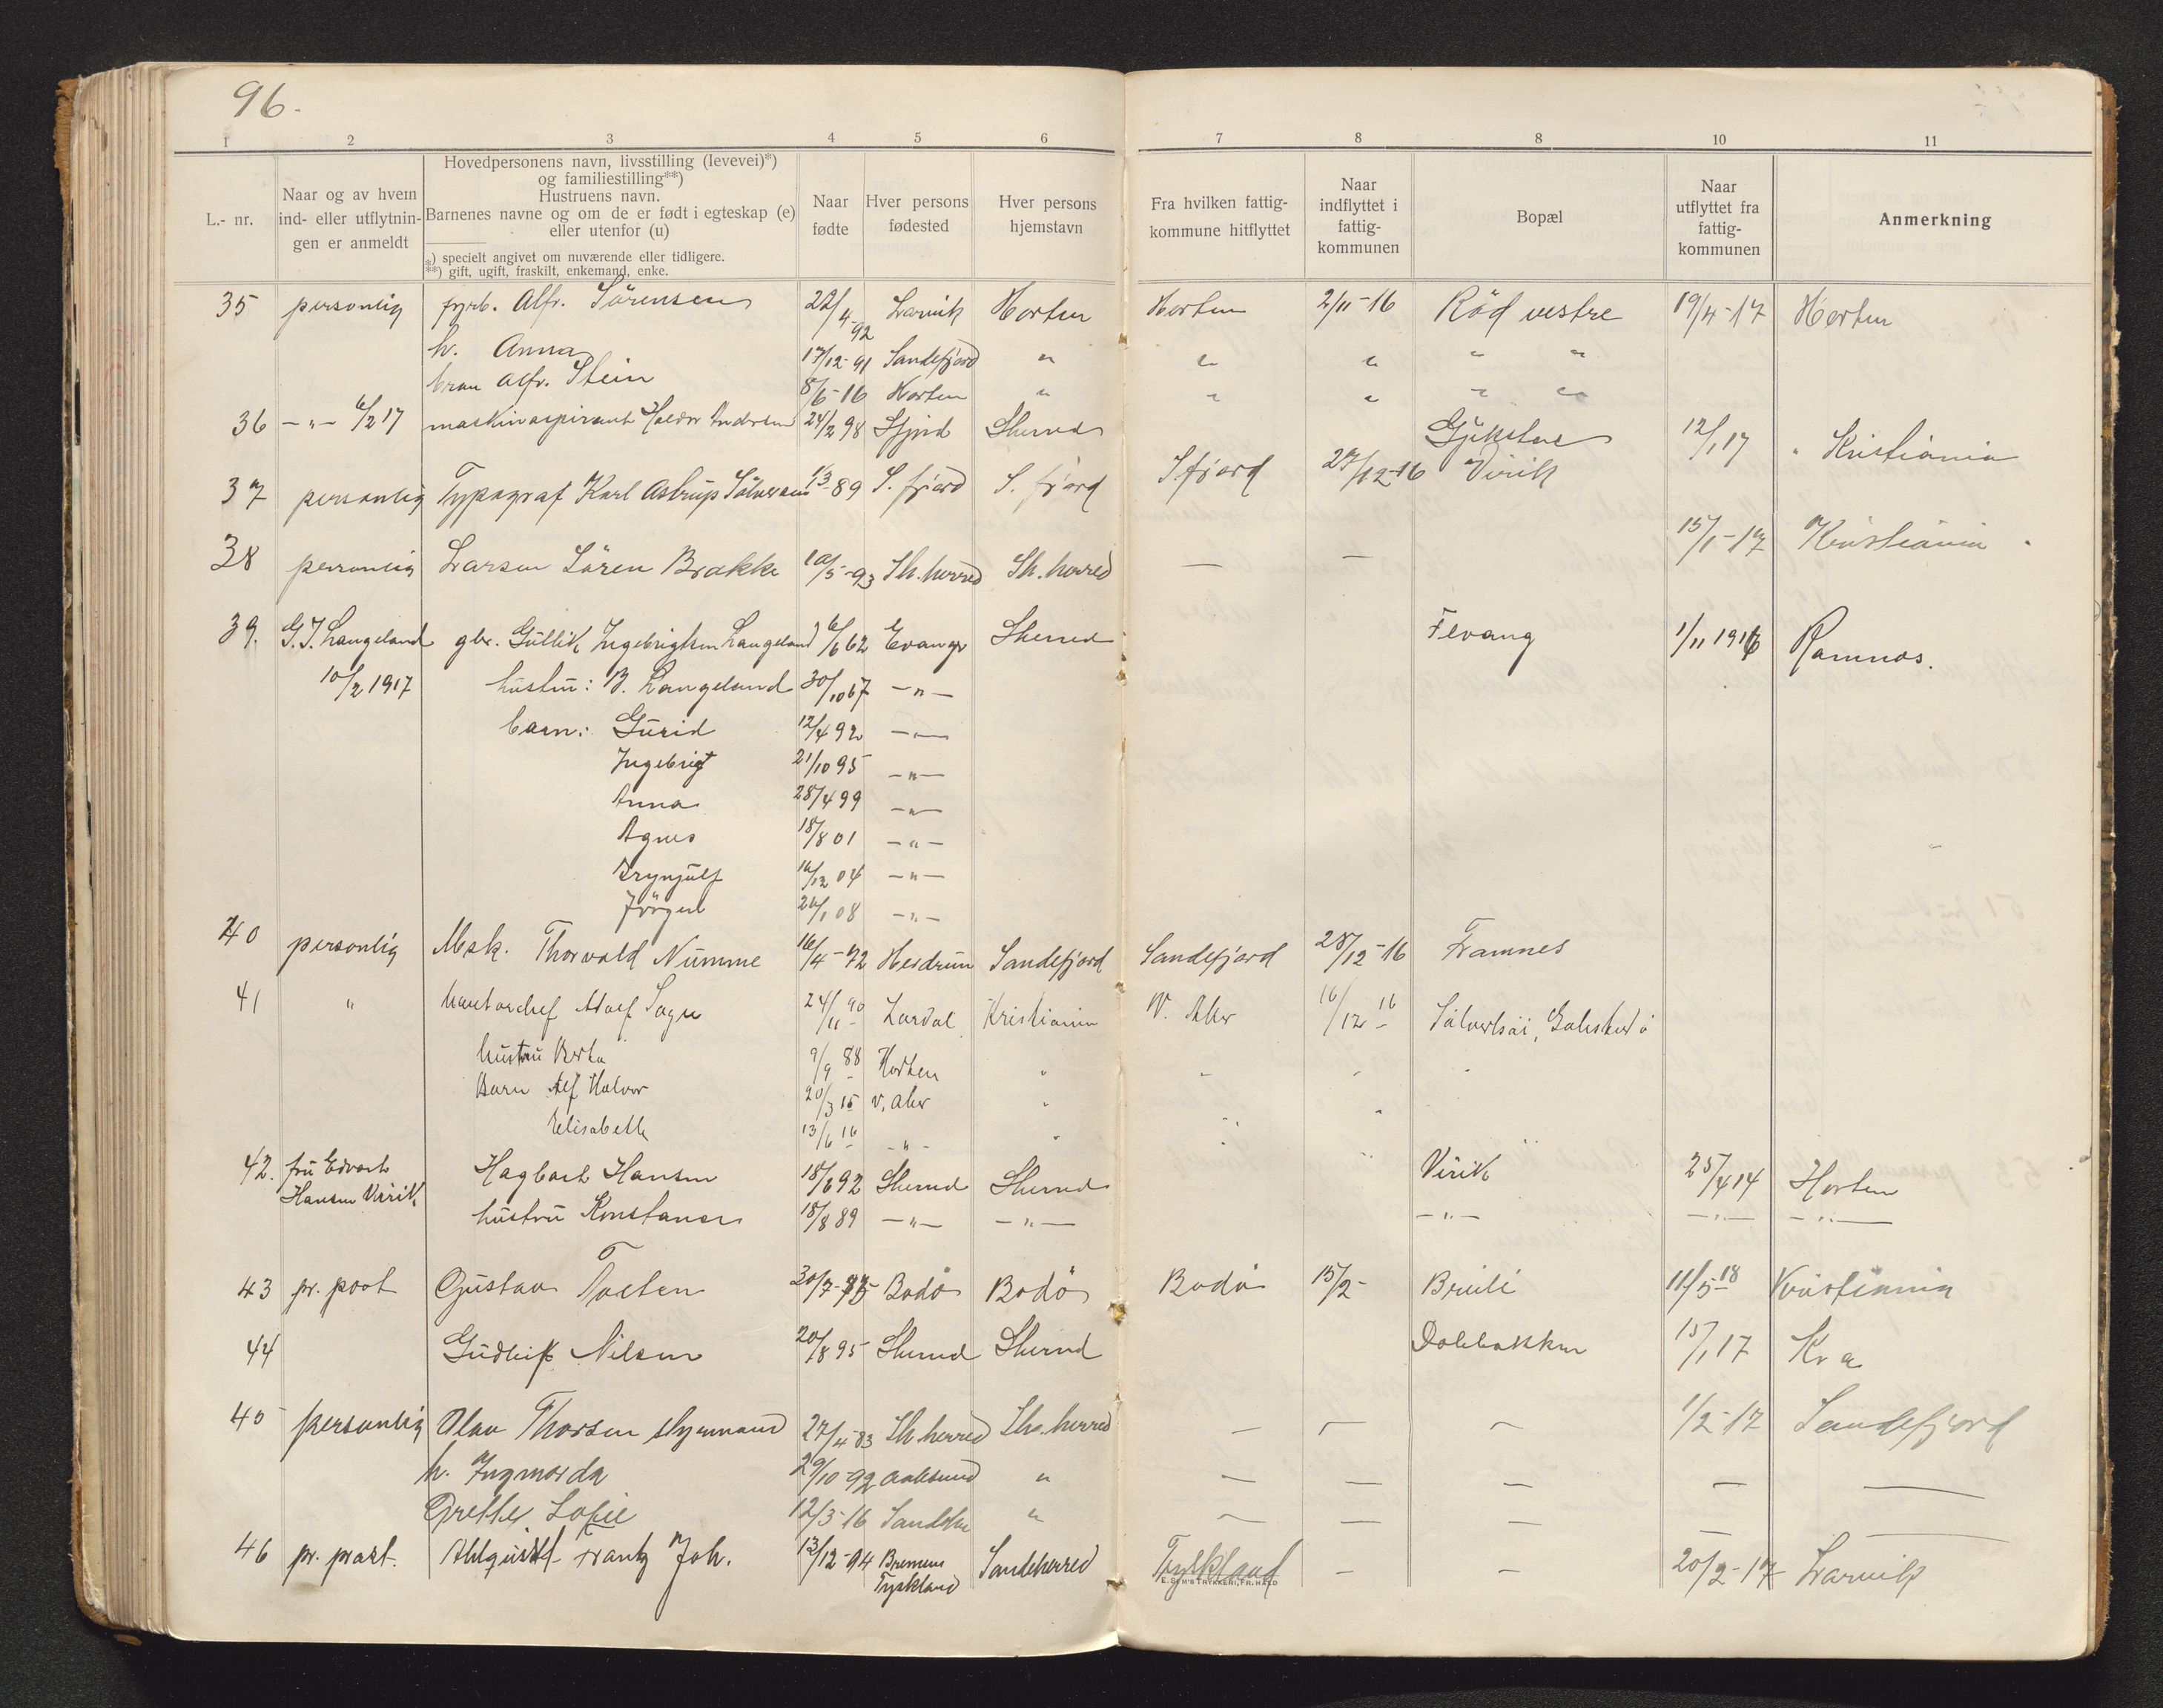 96.
1 2 3 4 5 6 7 8 8 10 11
L.- nr.
Naar og av hvem
ind- eller utflytnin-
gen er anmeldt
Hovedpersonens navn, livsstilling (levevei)*)
og familiestilling**)
Hustruens navn.
Barnenes navne og om de er født i egteskap (e)
eller utenfor (u)
*) specielt angivet om nuværende eller tidligere.
**) gift, ugift, fraskilt, enkemand, enke.
Naar
fødte
Hver persons
fødested
Hver persons
hjemstavn
Fra hvilken fattig-
kommune hitflyttet
Naar
indflyttet i
fattig-
kommunen
Bopæl
Naar
utflyttet fra
fattig-
kommunen
Anmerkning
35 personlig fyrb. Alfr. Sörensen 22/4-92 Larvik Horten Horten 2/11-16 Röd vestre 19/4-17 Horten
h. Anna 17/12-91 Sandefjord " " " " "
barn Alfr. Stein 8/6-16 Horten " " " " "
36 -"- 6/2 17 maskinaspirant Haldor Andersen 24/2 98 Sfjord Sherred Gjekstad 12/1 17 Kristiania
37 personlig Typograf Karl Astrup Sölversen 1/3-89 S. fjord S. fjord Sfjord 27/12-16 Virik
38 personlig Larsen Sören Brakke 10/5-93 Sh. herred Sh. herred — — 15/1-17 Kristiania
39. G. I. Langeland gbr. Gullik Ingebrigtsen Langeland 6/6 62 Evanger Sherred Fevang 1/11 1916 Ramnæs.
10/2 1917 hustru: B. Langeland 30/10 67 -"-
barn: Gurid 12/4 92 -"-
Ingebrigt 21/10 95 -"-
Anna 28/4 99 -"-
Agnes 18/8 01 -"-
Brynjulf 16/12 04 -"-
Jörgen 26/1 08 -"-
40 personlig Msk. Thorvald Numme 16/4-72 Hedrum Sandefjord Sandefjord 28/12-16 Framnes
41 " kontorchef Adolf Sagn 24/11 90 Lardal Kristiania V. Aker 16/12 16
hustru Berta 9/9 88 Horten " " " "
Barn Alf Halvor 20/3 15 v. Aker " "
Elisabeth 13/6 16 -"- " "
42. fru Edvard Hagbart Hansen 18/6 92 Sherred Sherred Virik 25/4 14 Horten
Hansen Virik hustru Konstance 18/8 89 -"- -"- -"- -"- -"-
43 pr. post Gustav Toften 30/7- Bodö Bodö Bodö 15/2- 11/5-18 Kristiania
44 Nilsen 20/8 95 Sherred Sherred Dölebakken 15/1 17 Kr a
45 personlig Olav Thorsen styrmand 27/4-83 Sh. herred Sh. herred — — — 1/2-17 Sandefjord
h. Ingmorda 29/10-92 Aalesund " — — — — —
Grethe Sofie 12/3-16 " — — — — —
46 pr. post. Ahlquist Frantz Joh. 13/12-94 Bremen Sandeherred Tyskland — — 20/2-17 Larvik
Tyskland
E. SEM'S TRYKKERI, FR.HALD